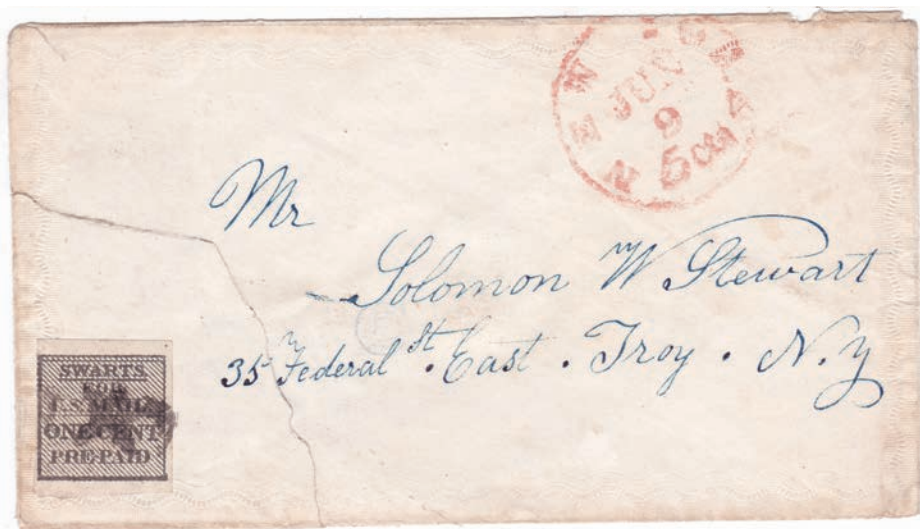 JUN
9
5 cts
Mr
Solomon W Stewart
35 Federal St. East. Troy. N.Y
SWARTS
FOR
U.S. MAIL
ONE CENT
PRE-PAID